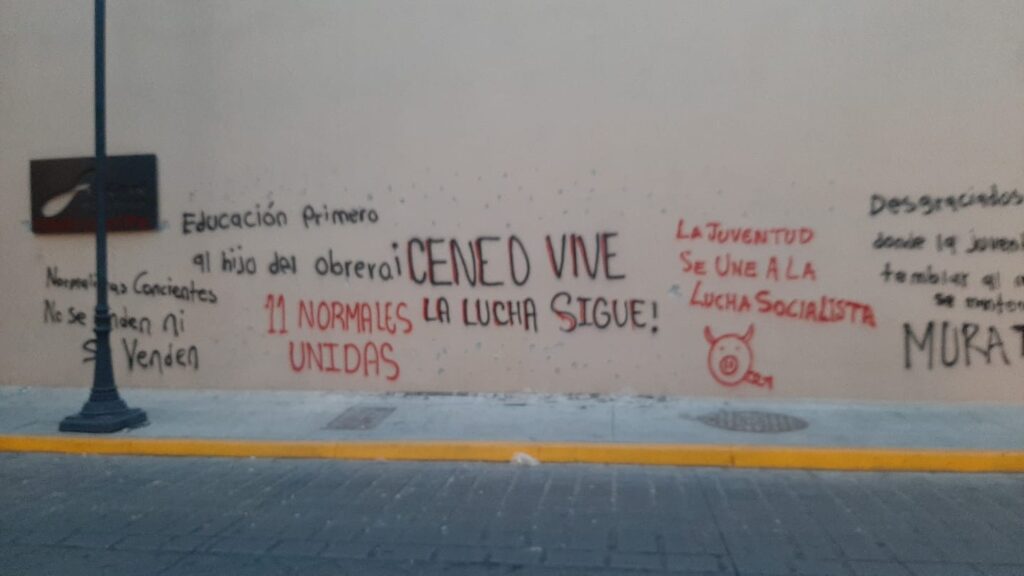 Educación Primero
al hijo del obrero
Concientes
No se ni
Venden
¡CENEO VIVE
LA LUCHA SIGUE!
11 NORMALES
UNIDAS
LA JUVENTUD
SE UNE A LA
LUCHA SOCIALISTA
Desgraciados
donde la
temblar
se
MURAT